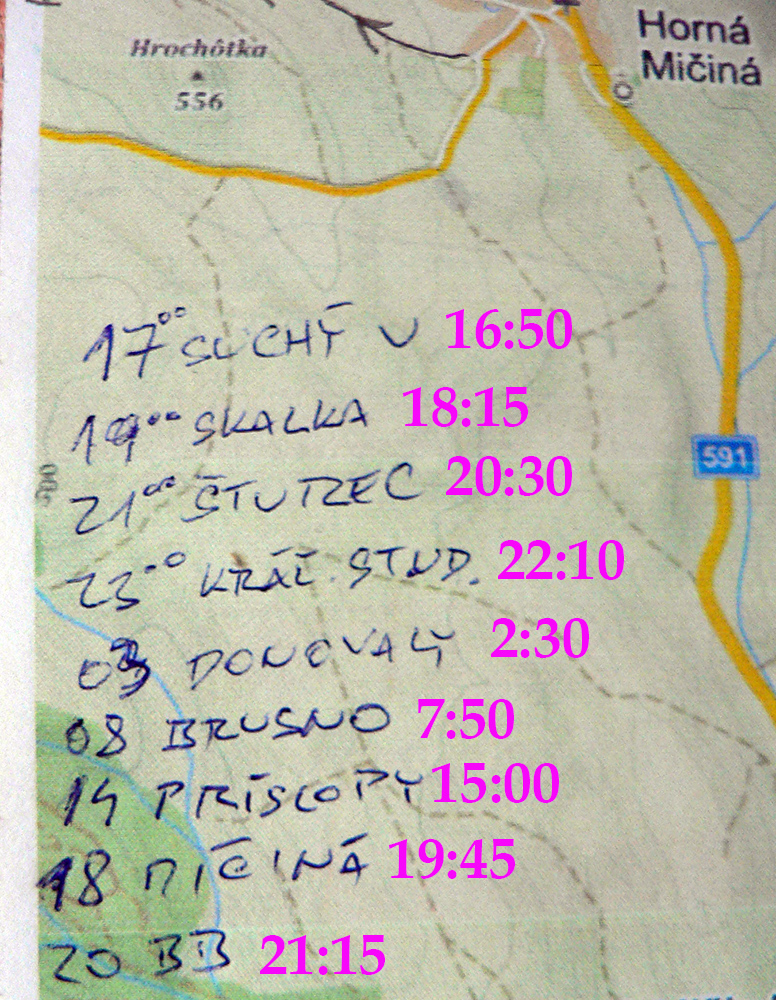 Horná
Mičiná
Hrochôtka
556
17⁰⁰ SUCHÝ V 16:50
19⁰⁰ SKALKA 18:15
591
21⁰⁰ ŠTUREC 20:30
23⁰⁰ KRÁĽ. STUD. 22:10
03 DONOVALY 2:30
08 BRUSNO 7:50
14 PRÍSLOPY 15:00
18 MIČINÁ 19:45
20 BB 21:15